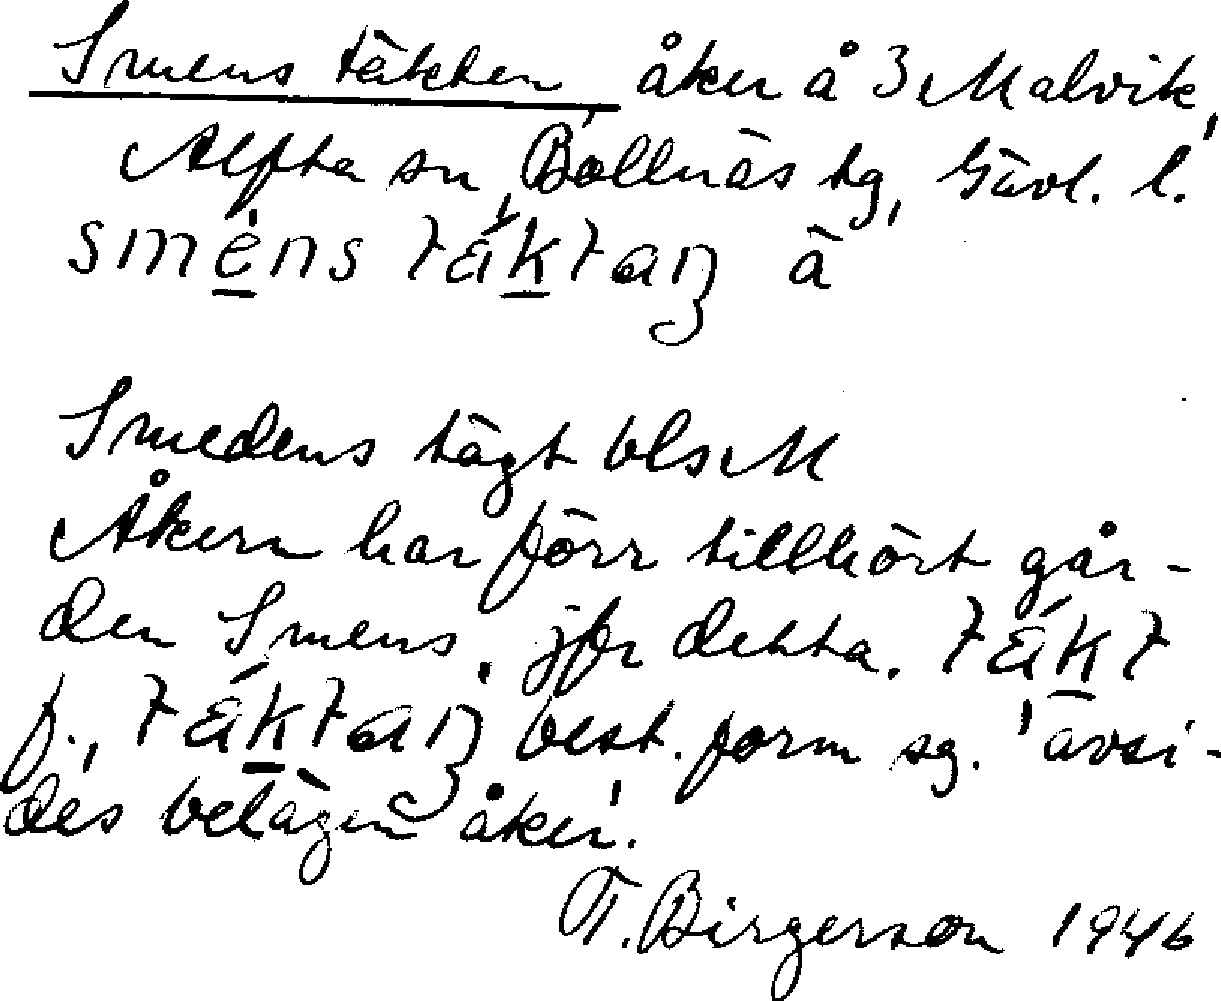 Smens täkten, åker å 3 Malvik,
Alfta sn, Bollnäs tg, Gävl. l.
smens täktaŋ å
Smedens tägt bls M
Åkern har förr tillhört går-
den Smens, jfr detta. täkt
f., täktaŋ best. form sg. 'avsi-
des belägen åker'.
T. Birgerson 1946